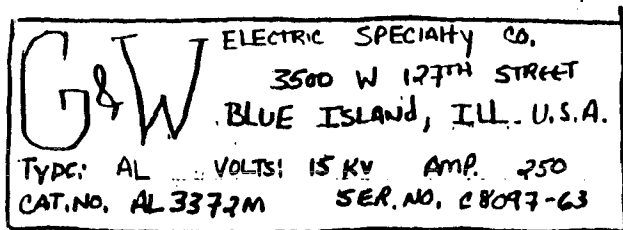 G&W
ELECTRIC SPECIALTY CO.
3500 W 127TH STREET
BLUE ISLAND, ILL. U.S.A.
TYPE: AL VOLTS: 15 KV AMP. 250
CAT. NO. AL 3372M SER. NO. C8097-63